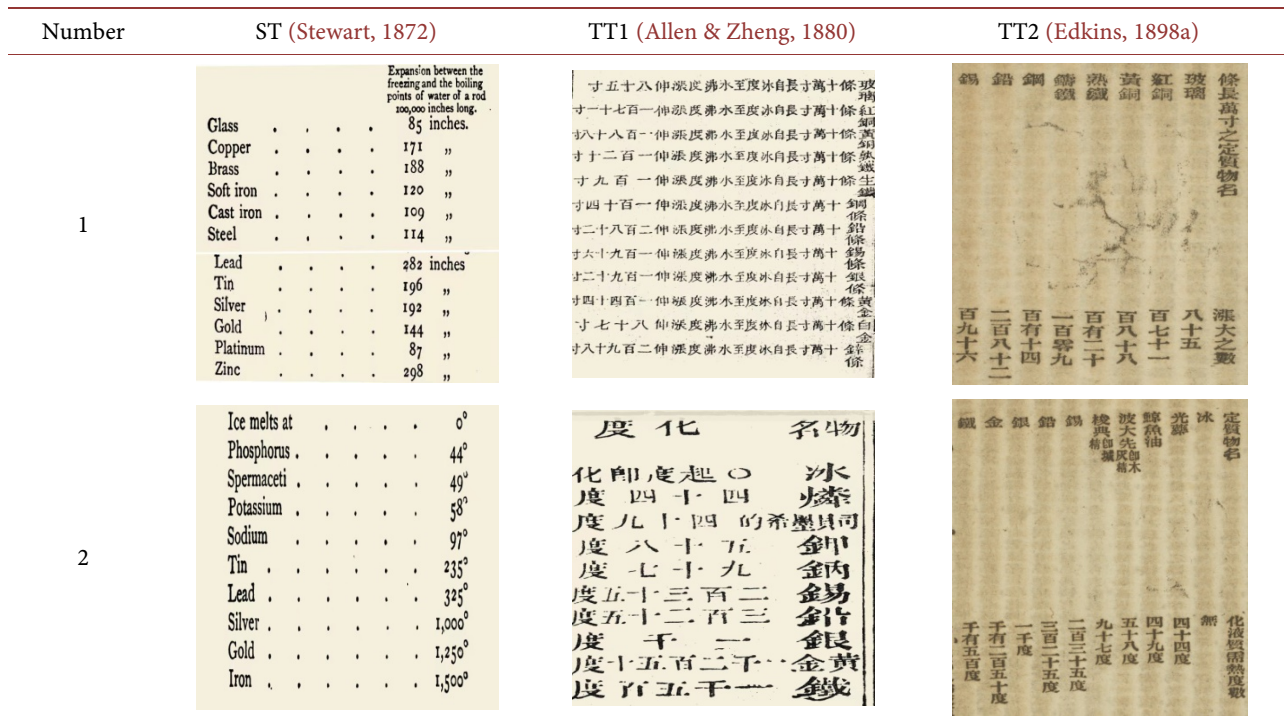 Number ST (Stewart, 1872) TT1 (Allen & Zheng, 1880) TT2 (Edkins, 1898a)
1
Expansion between the
freezing and the boiling
points of water of a rod
100,000 inches long.
Glass . . . . 85 inches.
Copper . . . . 171 „
Brass . . . . 188 „
Soft iron . . . . 120 „
Cast iron . . . . 109 „
Steel . . . . 114 „
Lead . . . . 282 inches
Tin . . . . 196 „
Silver . . . . 192 „
Gold . . . . 144 „
Platinum . . . . 87 „
Zinc . . . . 298 „
玻璃條十萬寸長自冰度至水沸度漲伸八十五寸
紅銅條十萬寸長自冰度至水沸度漲伸一百七十一寸
黃銅條十萬寸長自冰度至水沸度漲伸一百八十八寸
熟鐵條十萬寸長自冰度至水沸度漲伸一百二十寸
生鐵條十萬寸長自冰度至水沸度漲伸一百九寸
鋼條十萬寸長自冰度至水沸度漲伸一百十四寸
鉛條十萬寸長自冰度至水沸度漲伸二百八十二寸
錫條十萬寸長自冰度至水沸度漲伸一百九十六寸
銀條十萬寸長自冰度至水沸度漲伸一百九十二寸
黃金條十萬寸長自冰度至水沸度漲伸一百四十四寸
白金條十萬寸長自冰度至水沸度漲伸八十七寸
鋅條十萬寸長自冰度至水沸度漲伸二百九十八寸
條長萬寸之定質物名 漲大之數
玻璃 八十五
紅銅 百七十一
黃銅 百八十八
熟鐵 百有二十
鑄鐵 一百零九
鋼 百有十四
鉛 二百八十二
錫 百九十六
2
Ice melts at . . . . 0°
Phosphorus . . . . . 44°
Spermaceti . . . . . 49°
Potassium . . . . . 58°
Sodium . . . . . 97°
Tin . . . . . . 235°
Lead . . . . . . 325°
Silver . . . . . . 1,000°
Gold . . . . . . 1,250°
Iron . . . . . . 1,500°
物名 化度
冰 〇起度即化
燐 四十四度
司貝希的 四十九度
鉀 五十八度
鈉 九十七度
錫 二百三十五度
鉛 三百二十五度
銀 一千度
黃金 一千二百五十度
鐵 一千五百度
定質物名 化液質需熱度數
冰 無
光藥 四十四度
鯨魚油 四十九度
波大先 即木灰精 五十八度
梭典 即精 九十七度
錫 二百三十五度
鉛 三百二十五度
銀 一千度
金 千有二百五十度
鐵 千有五百度